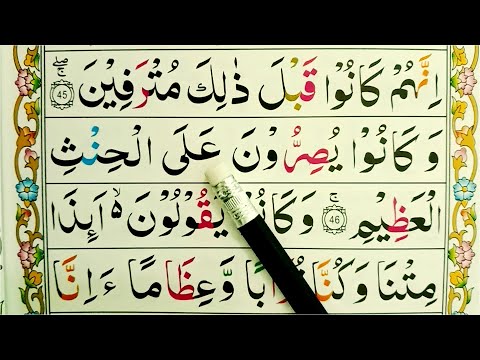 اِنَّهُمْ كَانُوْا قَبْلَ ذٰلِكَ مُتْرَفِيْنَ ۝45 ۚۖ
وَكَانُوْا يُصِرُّوْنَ عَلَى الْحِنْثِ
الْعَظِيْمِ ۝46 ۚ وَكَانُوْا يَقُوْلُوْنَ ۙ۬ اَئِذَا
مِتْنَا وَكُنَّا تُرَابًا وَّعِظَامًا ءَاِنَّا